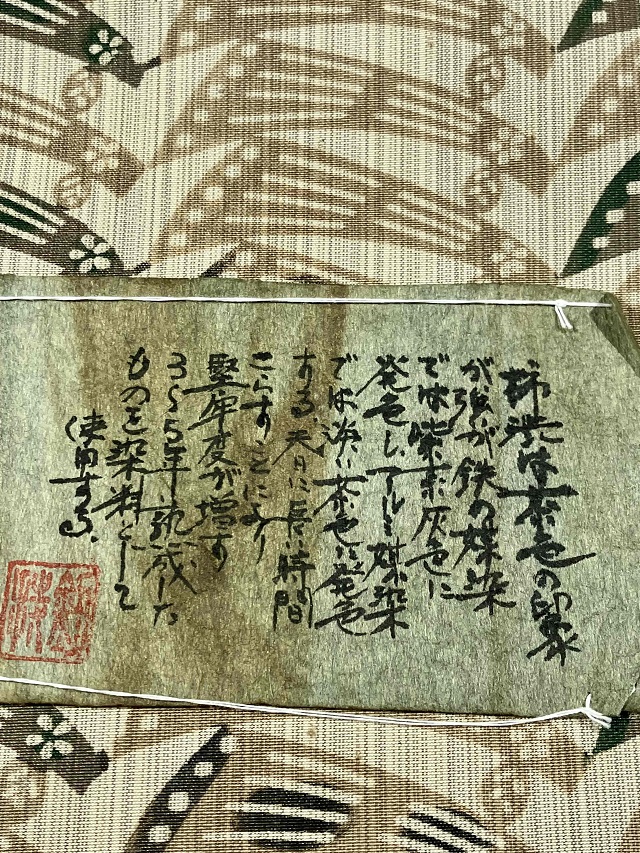 柿渋は茶色の印象
が強が鉄の媒染
では紫赤灰色に
発色し、アルミ媒染
では淡い茶色に発色
する。天日に長い時間
さらすことにより
堅牢度が増す
3〜5年、熟成した
ものを染料として
使用する。